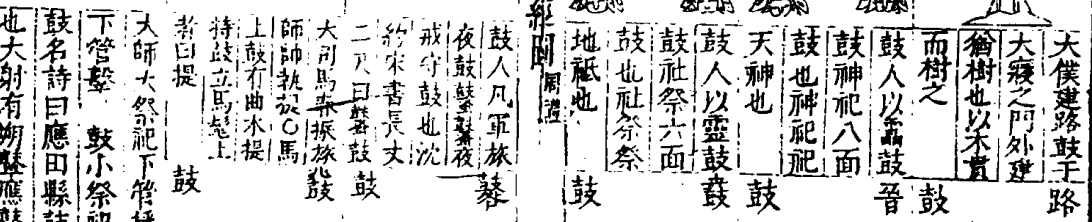 大僕建路鼓于
大寢之門外建
猶樹也以木貫
而樹之
鼓人以靁鼓
鼓神祀八面
鼓也神祀祀
天神也
鼓人以靈鼓
鼓社祭六面
鼓也社祭祭
地祇也
路
鼓
晉
鼓
鼓
鼓
經圖
周禮
鼓人凡軍旅
夜鼓鼜鼜夜
戒守鼓也沈
約宋書長丈
二尺曰鼜鼓
大司馬振旅
師帥執提
馬
上鼓有曲木提
持鼓立馬髦上
者曰提
鼜
鼓
鼓
鼓
大師大祭祀下管
下管擊
鼓小祭祀
鼓名詩曰應田縣鼓
也大射有朔鼙應鼓